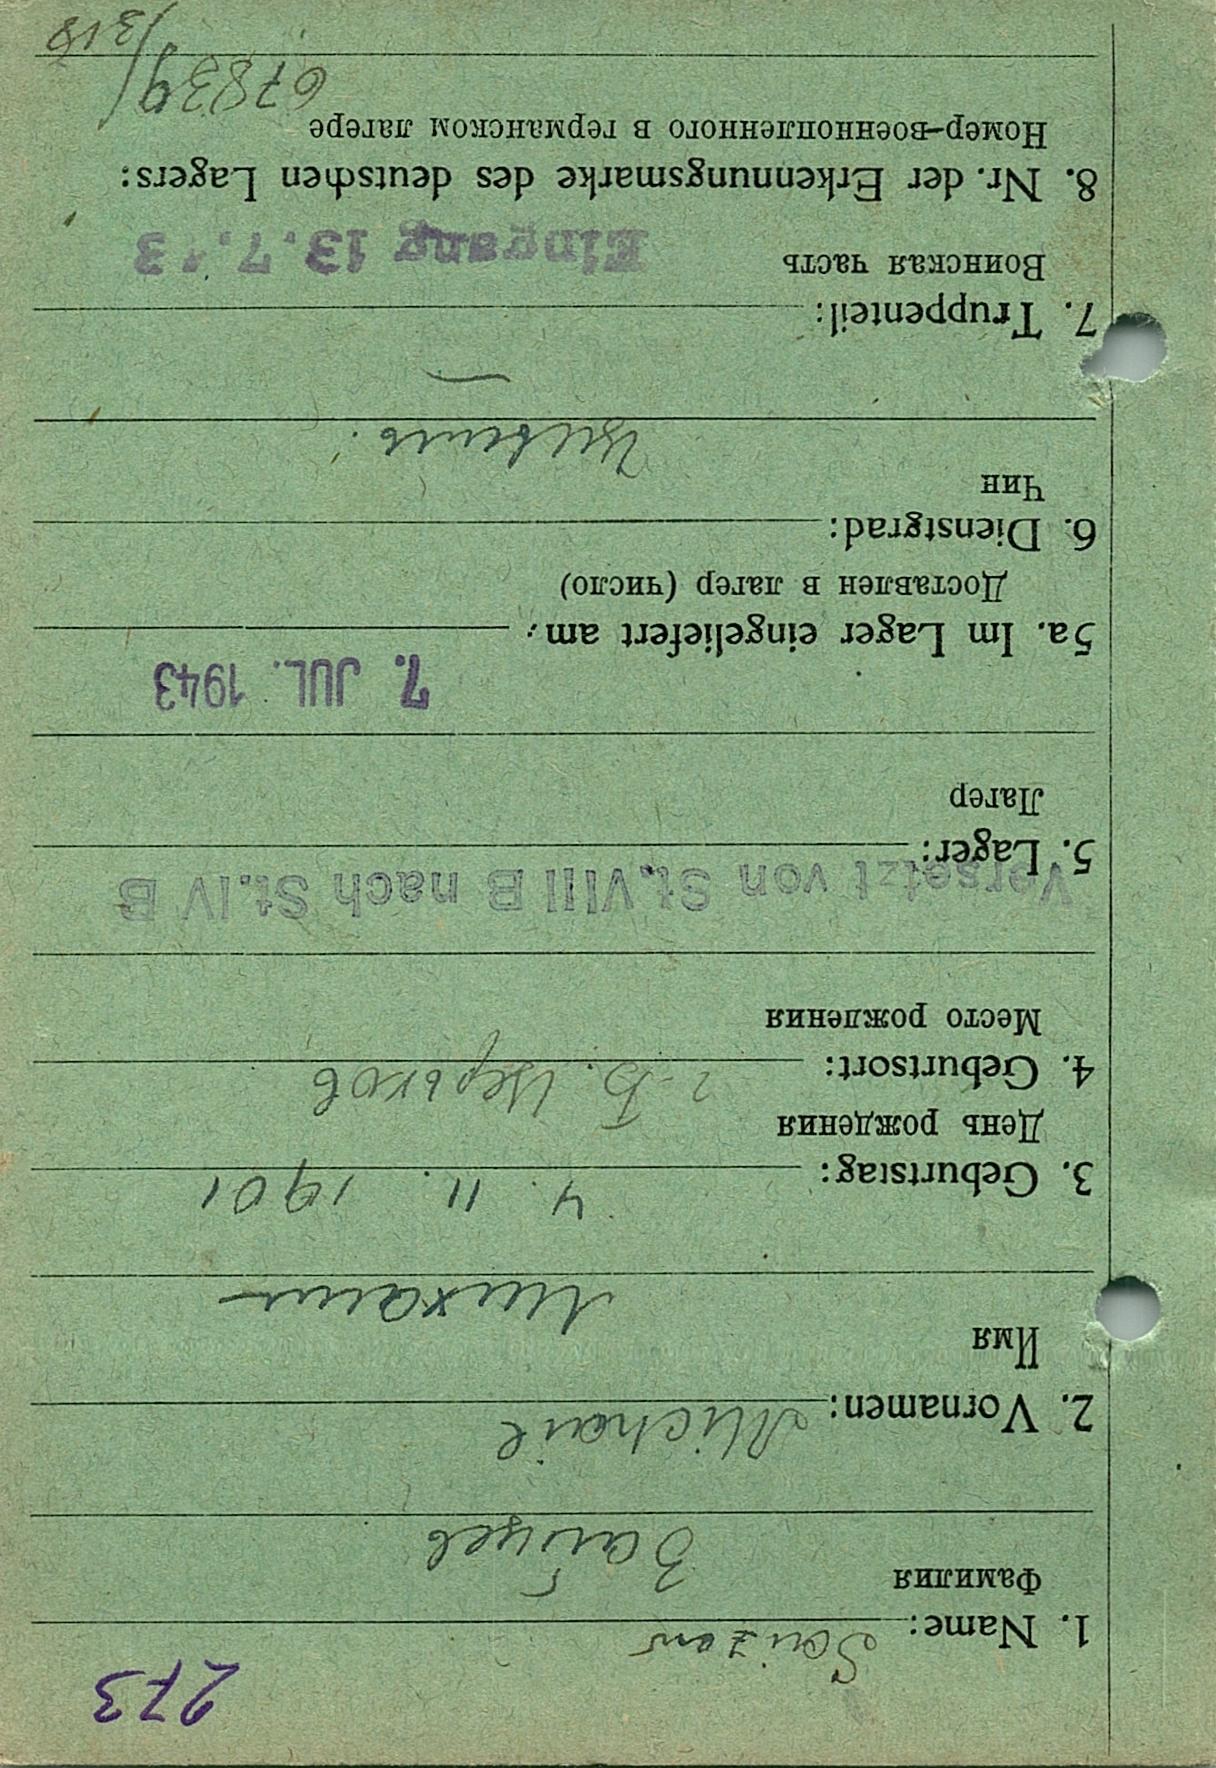 273
1. Name: Saizew
Фамилия
Зайцев
2. Vornamen: Michail
Имя
Михаил
3. Geburtstag: 4. 11. 1901
День рождения
4. Geburtsort:
Место рождения
Versetzt von St. VIII B nach St. IV B
5. Lager:
Лагер
7. JUL. 1943
5a. Im Lager eingeliefert am:
Доставлен в лагер (число)
6. Dienstgrad:
Чин
7. Truppenteil:
Воинская часть
Eingang 13.7.43
8. Nr. der Erkennungsmarke des deutschen Lagers:
Номер-военнопленного в германском лагере
67839/318